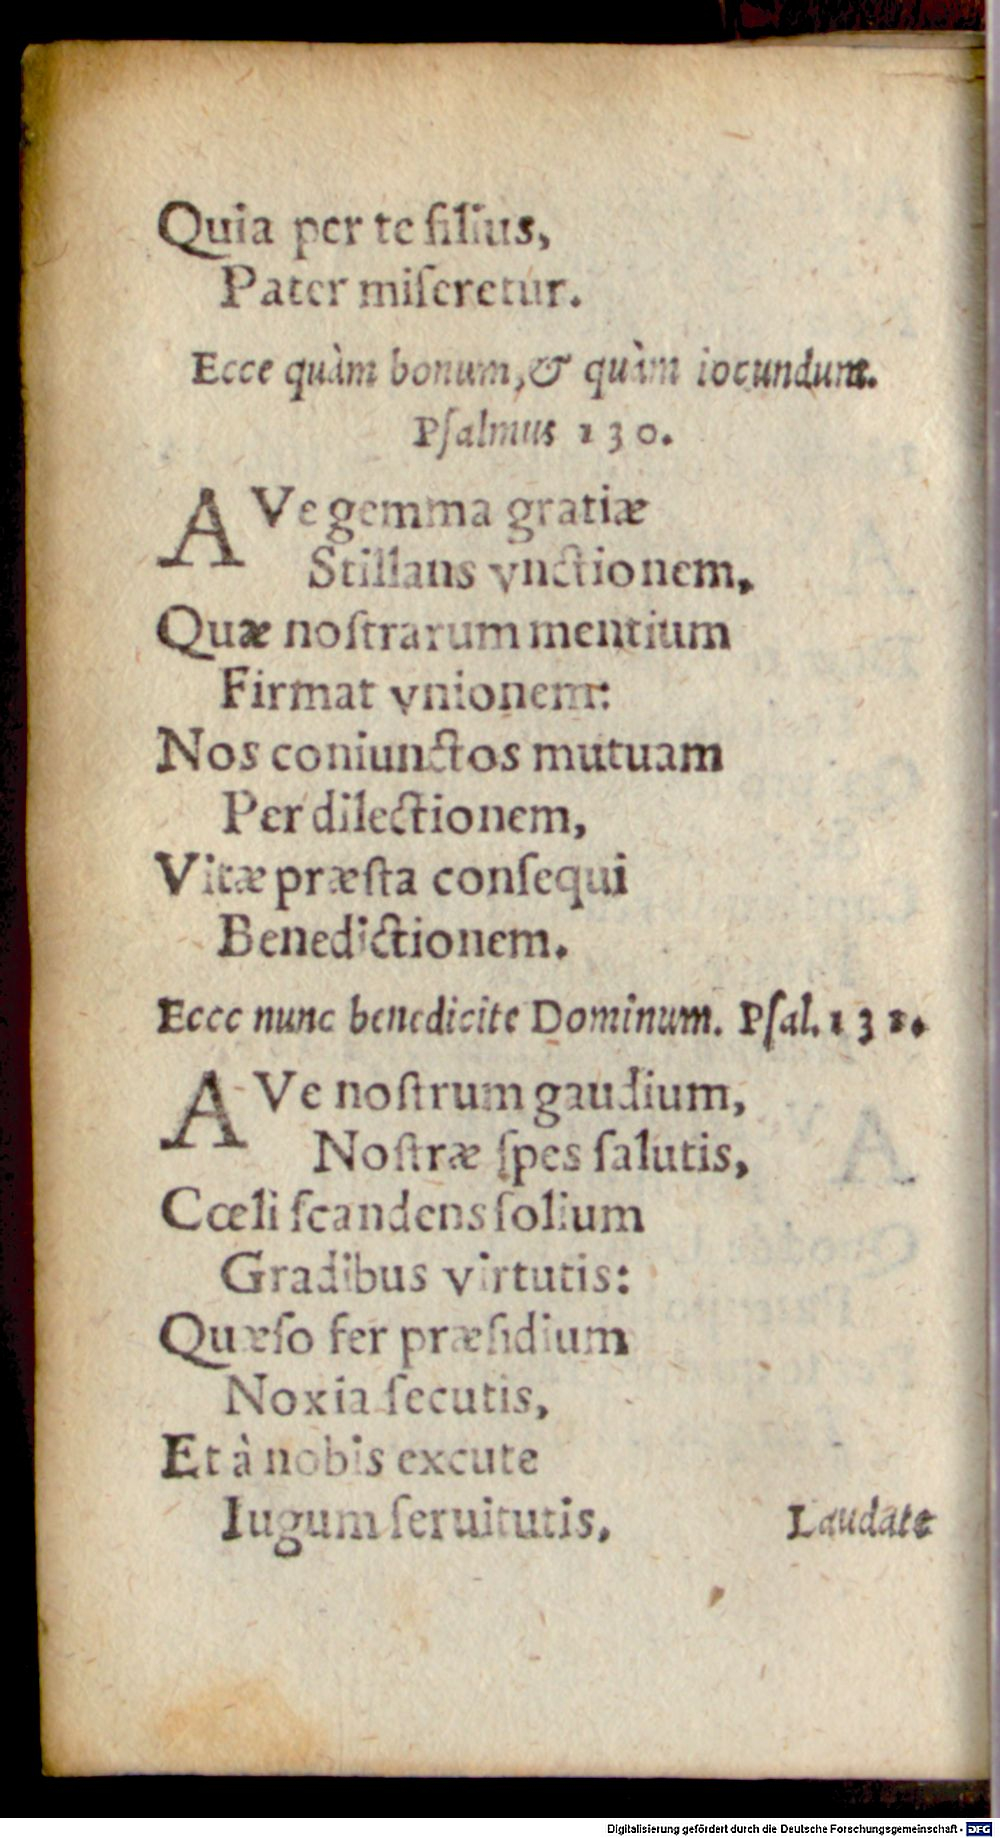 Quia per te filius,
Pater miſeretur.
Ecce quàm bonum, & quàm iocundum.
Pſalmus 130.
AVe gemma gratiæ
Stillans vnctionem,
Quæ noſtrarum mentium
Firmat vnionem:
Nos coniunctos mutuam
Per dilectionem,
Vitæ præſta conſequi
Benedictionem.
Ecce nunc benedicite Dominum. Pſal. 131.
AVe noſtrum gaudium,
Noſtræ ſpes ſalutis,
Cœli ſcandens ſolium
Gradibus virtutis:
Quæſo fer præſidium
Noxia ſecutis,
Et à nobis excute
Iugum ſeruitutis,
Laudate
Digitalisierung gefördert durch die Deutsche Forschungsgemeinschaft - DFG